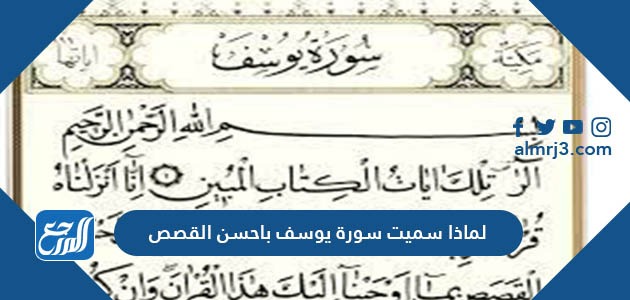 مَكِّيَّة سُورَةُ يُوسُفَ اياتها
بِسْمِ اللهِ الرَّحْمٰنِ الرَّحِيمِ
الٓرٰ تِلْكَ اٰيَاتُ الْكِتَابِ الْمُبِينِ ١ اِنَّٓا اَنْزَلْنَاهُ
almrj3.com
لماذا سميت سورة يوسف باحسن القصص
المرجع
الْقَصَصِ بِمَٓا اَوْحَيْنَٓا اِلَيْكَ هٰذَا الْقُرْاٰنَ وَاِنْ